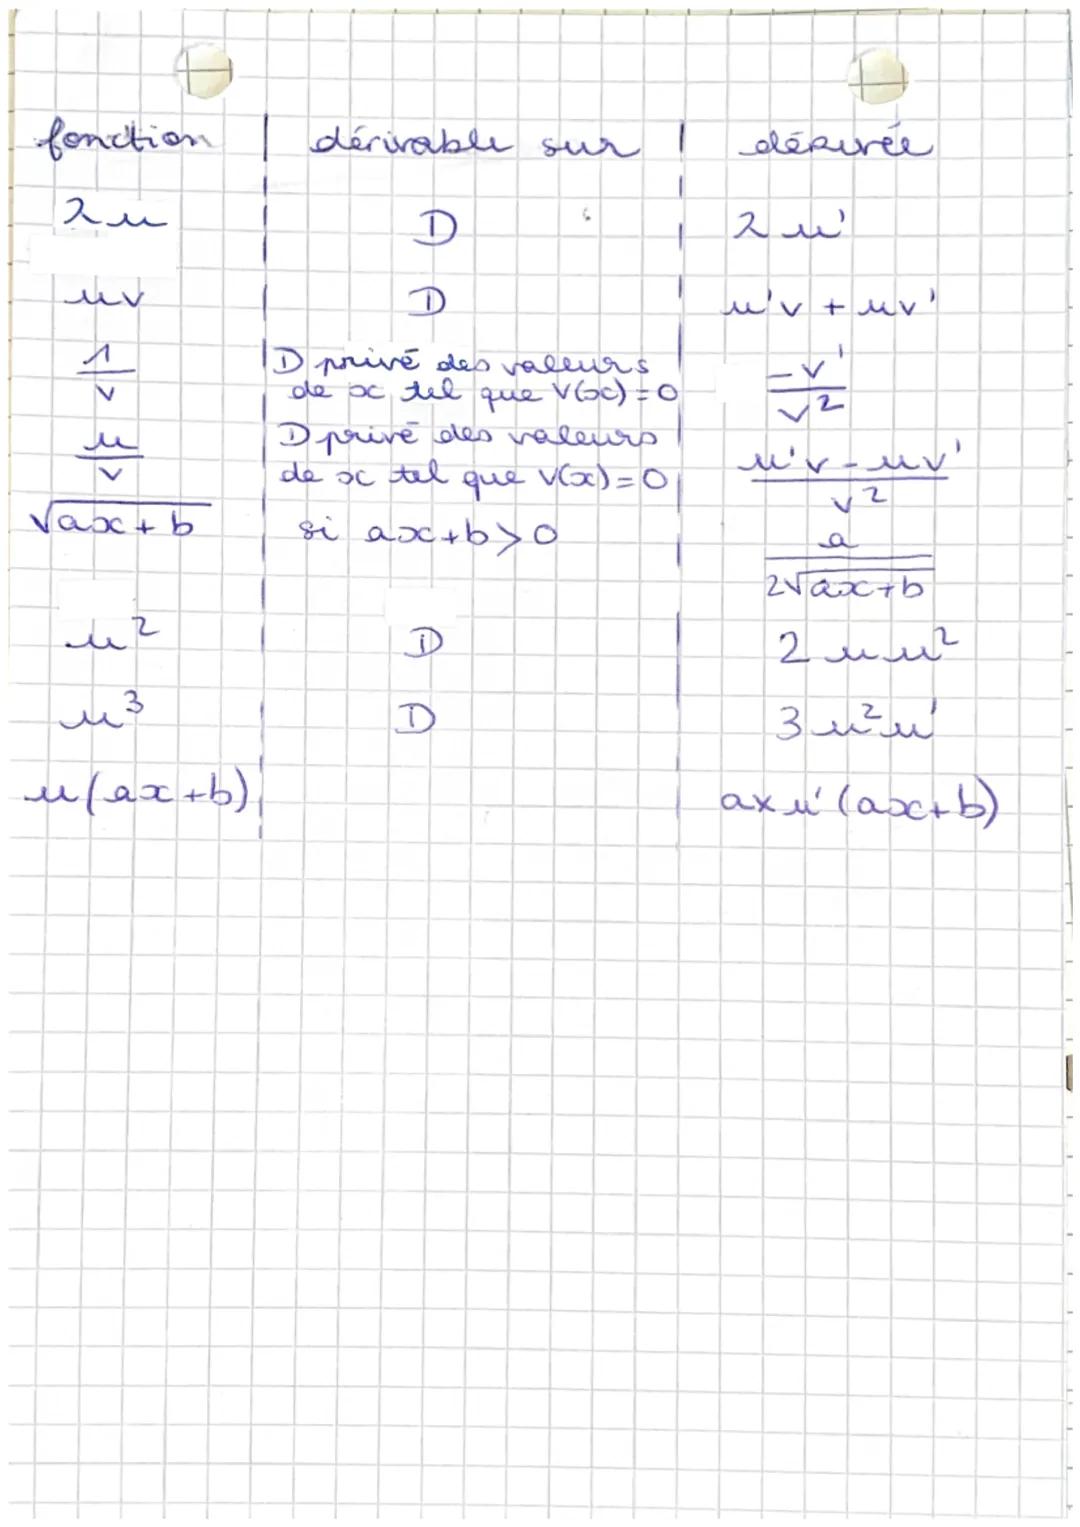 fonction | dérivable sur | dérivée
λu D λu'
uv D u'v + uv'
1/v D privé des valeurs de x tel que V(x)=0 -v'/v²
u/v D privé des valeurs de x tel que V(x)=0 u'v-uv'/v²
√ax+b si ax+b>0 a/2√ax+b
u² D 2uu²
u³ D 3u²u'
u(ax+b) axu'(ax+b)